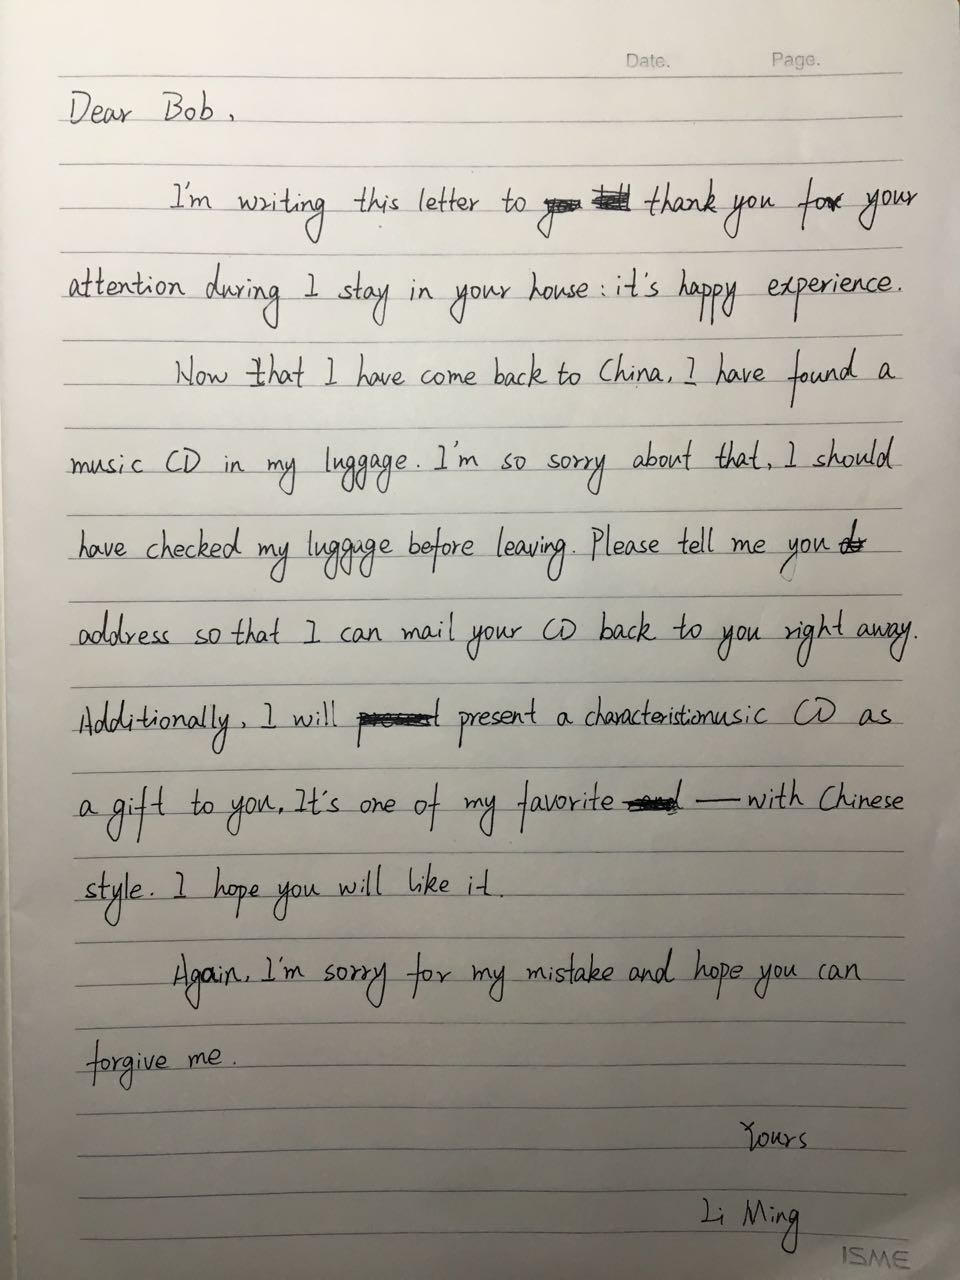 Date. Page.
Dear Bob,
I'm writing this letter to thank you for your
attention during I stay in your house: it's happy experience.
Now that I have come back to China, I have found a
music CD in my luggage. I'm so sorry about that, I should
have checked my luggage before leaving. Please tell me you
address so that I can mail your CD back to you right away.
Additionally, I will present a characteristionusic CD as
a gift to you. It's one of my favorite — with Chinese
style. I hope you will like it.
Again, I'm sorry for my mistake and hope you can
forgive me.
Yours
Li Ming
ISME